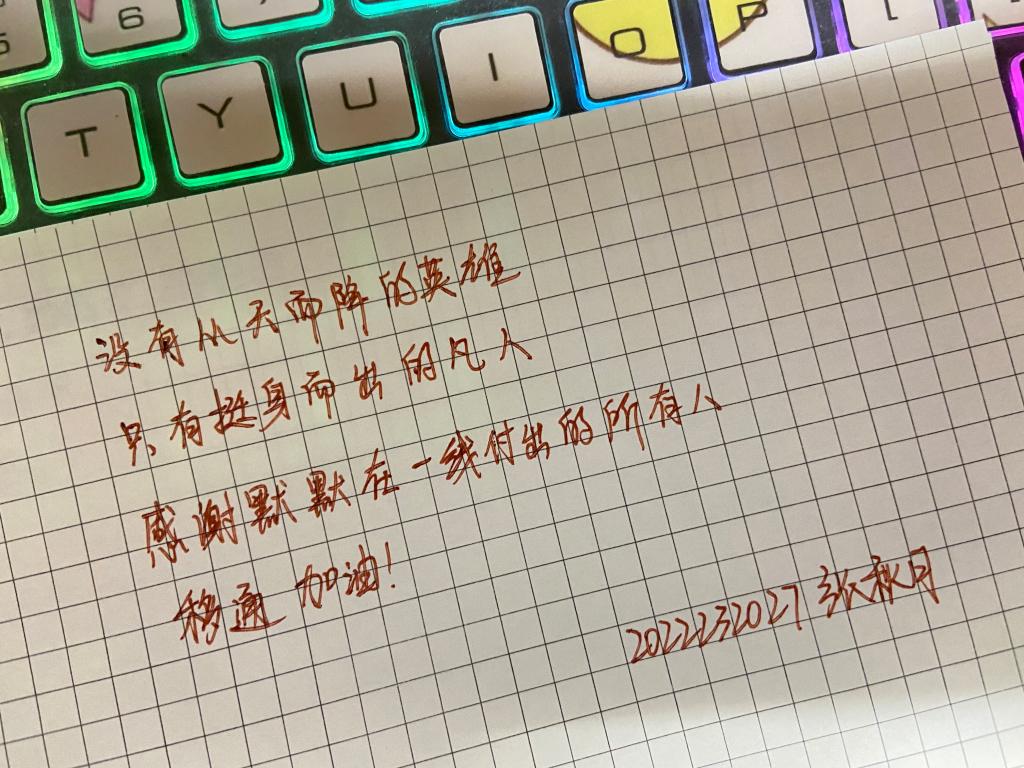 6
T Y U I O P [
没有从天而降的英雄
只有挺身而出的凡人
感谢默默在一线付出的所有人
移通 加油!
2022232027 张秋月